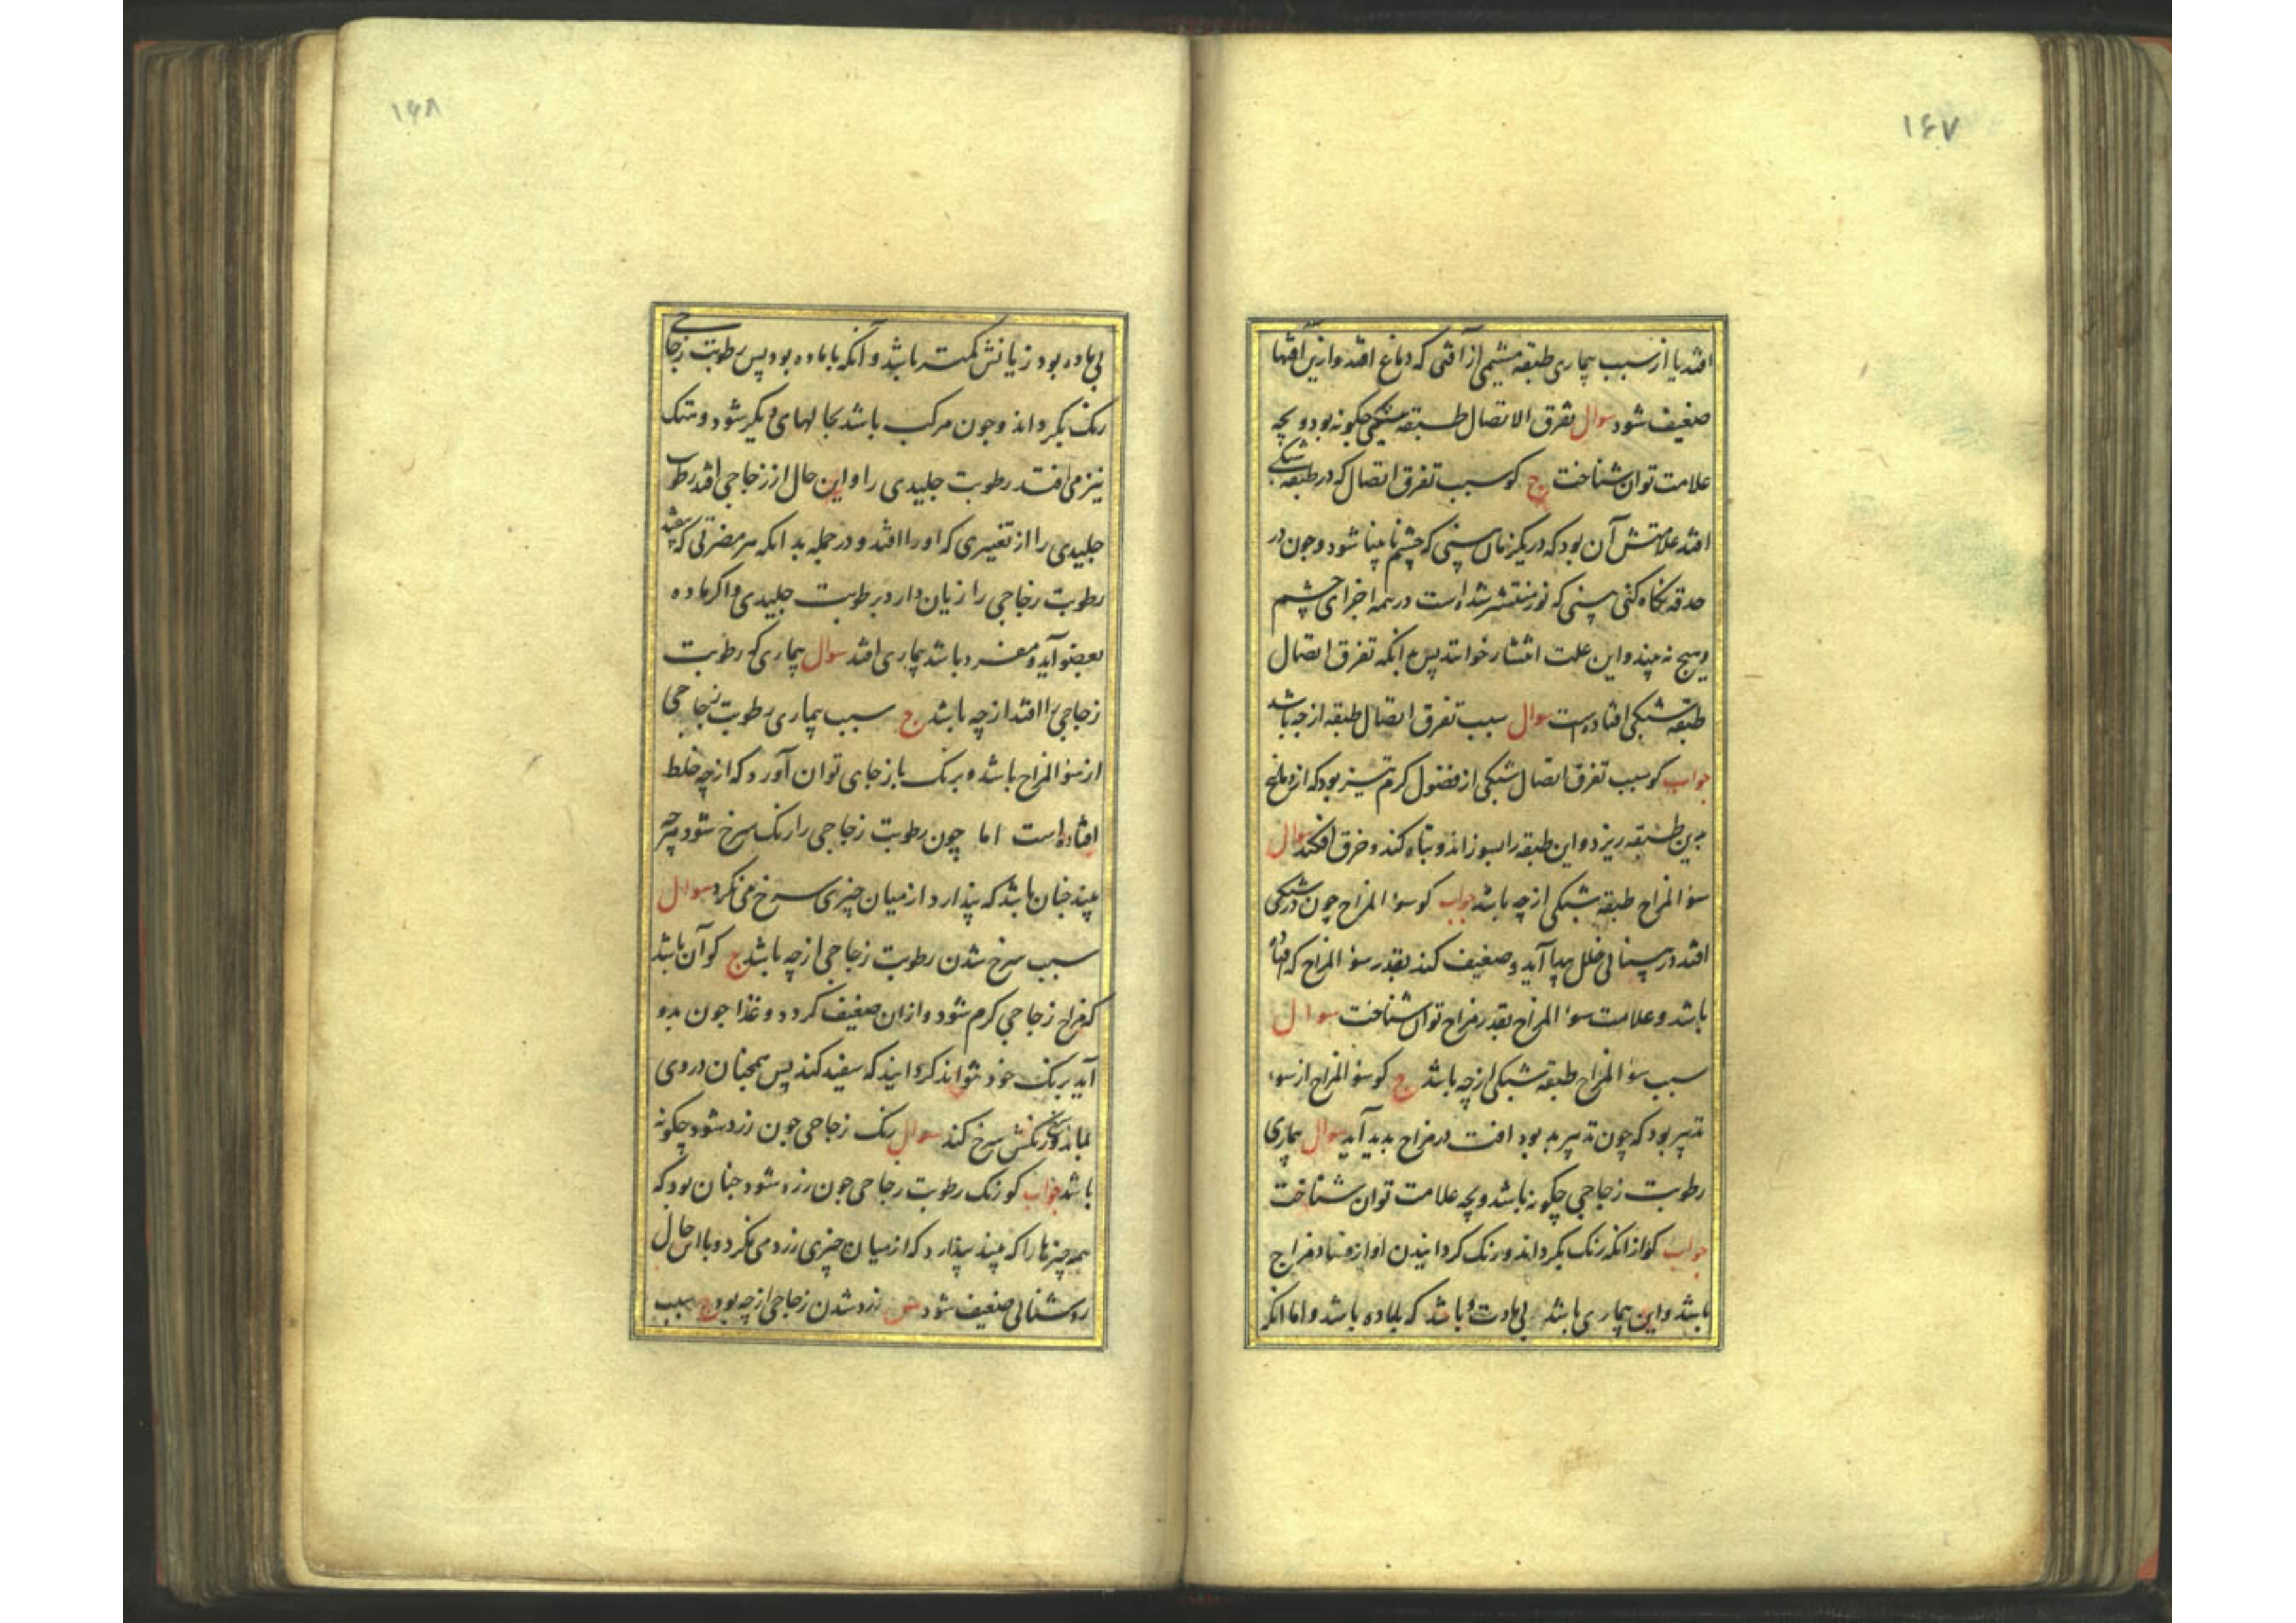 ۱۶۷
افتد یا از سبب بیماری طبقه مشیمی از آفتی که دماغ افتد و ازین آفتها
ضعیف شود سوال تفرق الاتصال طبقه شبکی چکونه بود و بچه
علامت توان شناخت ج کو سبب تفرق اتصال که در طبقه شبکی
افتد علامتش آن بود که در یکزمان بینی که چشم نابینا شود و چون در
حدقه نکاه کنی بینی که نور منتشر شده است در همه اجزای چشم
و هیچ نه بیند و این علت انتشار خوانند پس بدانکه تفرق اتصال
طبقه شبکی افتاده است سوال سبب تفرق اتصال طبقه از چه باشد
جواب کو سبب تفرق اتصال شبکی از فضول کرم تیز بود که از دماغ
بدین طبقه ریزد و این طبقه را بسوزاند و تباه کند و خرق افکند سوال
سؤ المزاج طبقه شبکی از چه باشد جواب کو سؤ المزاج چون در شبکی
افتد در بینائی خلل پیدا آید و ضعیف کند بقدر سؤ المزاج که افتاده
باشد و علامت سؤ المزاج بقدر مزاج توان شناخت سوال
سبب سؤ المزاج طبقه شبکی از چه باشد ج کو سؤ المزاج از سوء
تدبیر بود که چون تدبیر بد بود آفت در مزاج بدید آید سوال بیماری
رطوبت زجاجی چکونه باشد و بچه علامت توان شناخت
جواب کو از آنکه رنک بکرداند و رنک کردانیدن او از فساد مزاج
باشد و این بیماری باشد بی مادت و باشد که با ماده باشد و اما انکه
۱۶۸
بی ماده بود زیانش کمتر باشد و آنکه با ماده بود پس رطوبت زجاجی
رنک بکرداند و چون مرکب باشد بحالهای دیکر شود و تنک
نیز می افتد رطوبت جلیدی را و این حال از زجاجی افتد رطوبت
جلیدی را از تغییری که او را افتد و در جمله بدانکه هر مضرتی که بیفتد
رطوبت زجاجی را زیان دارد برطوبت جلیدی و اکر ماده
بعضو آید و مفرد باشد بیماری افتد سوال بیماری که رطوبت
زجاجی را افتد از چه باشد ج سبب بیماری رطوبت زجاجی
از سؤ المزاج باشد و برنک باز جای توان آورد که از چه خلط
افتاده است اما چون رطوبت زجاجی را رنک سرخ شود هر چه
بیند چنان باشد که پندارد از میان چیزی سرخ می نکرد سوال
سبب سرخ شدن رطوبت زجاجی از چه باشد ج کو آن باشد
که مزاج زجاجی کرم شود و از ان ضعیف کردد و غذا چون بدو
آید برنک خود نتواند کردانید که سفید کند پس همچنان در وی
بماند و رنکش سرخ کند سوال رنک زجاجی چون زرد شود چکونه
باشد جواب کو رنک رطوبت زجاجی چون زرد شود چنان بود که
همه چیزها را که بیند پندارد که از میان چیزی زرد می نکرد و با این حال
روشنائی ضعیف شود س زرد شدن زجاجی از چه بود ج سبب